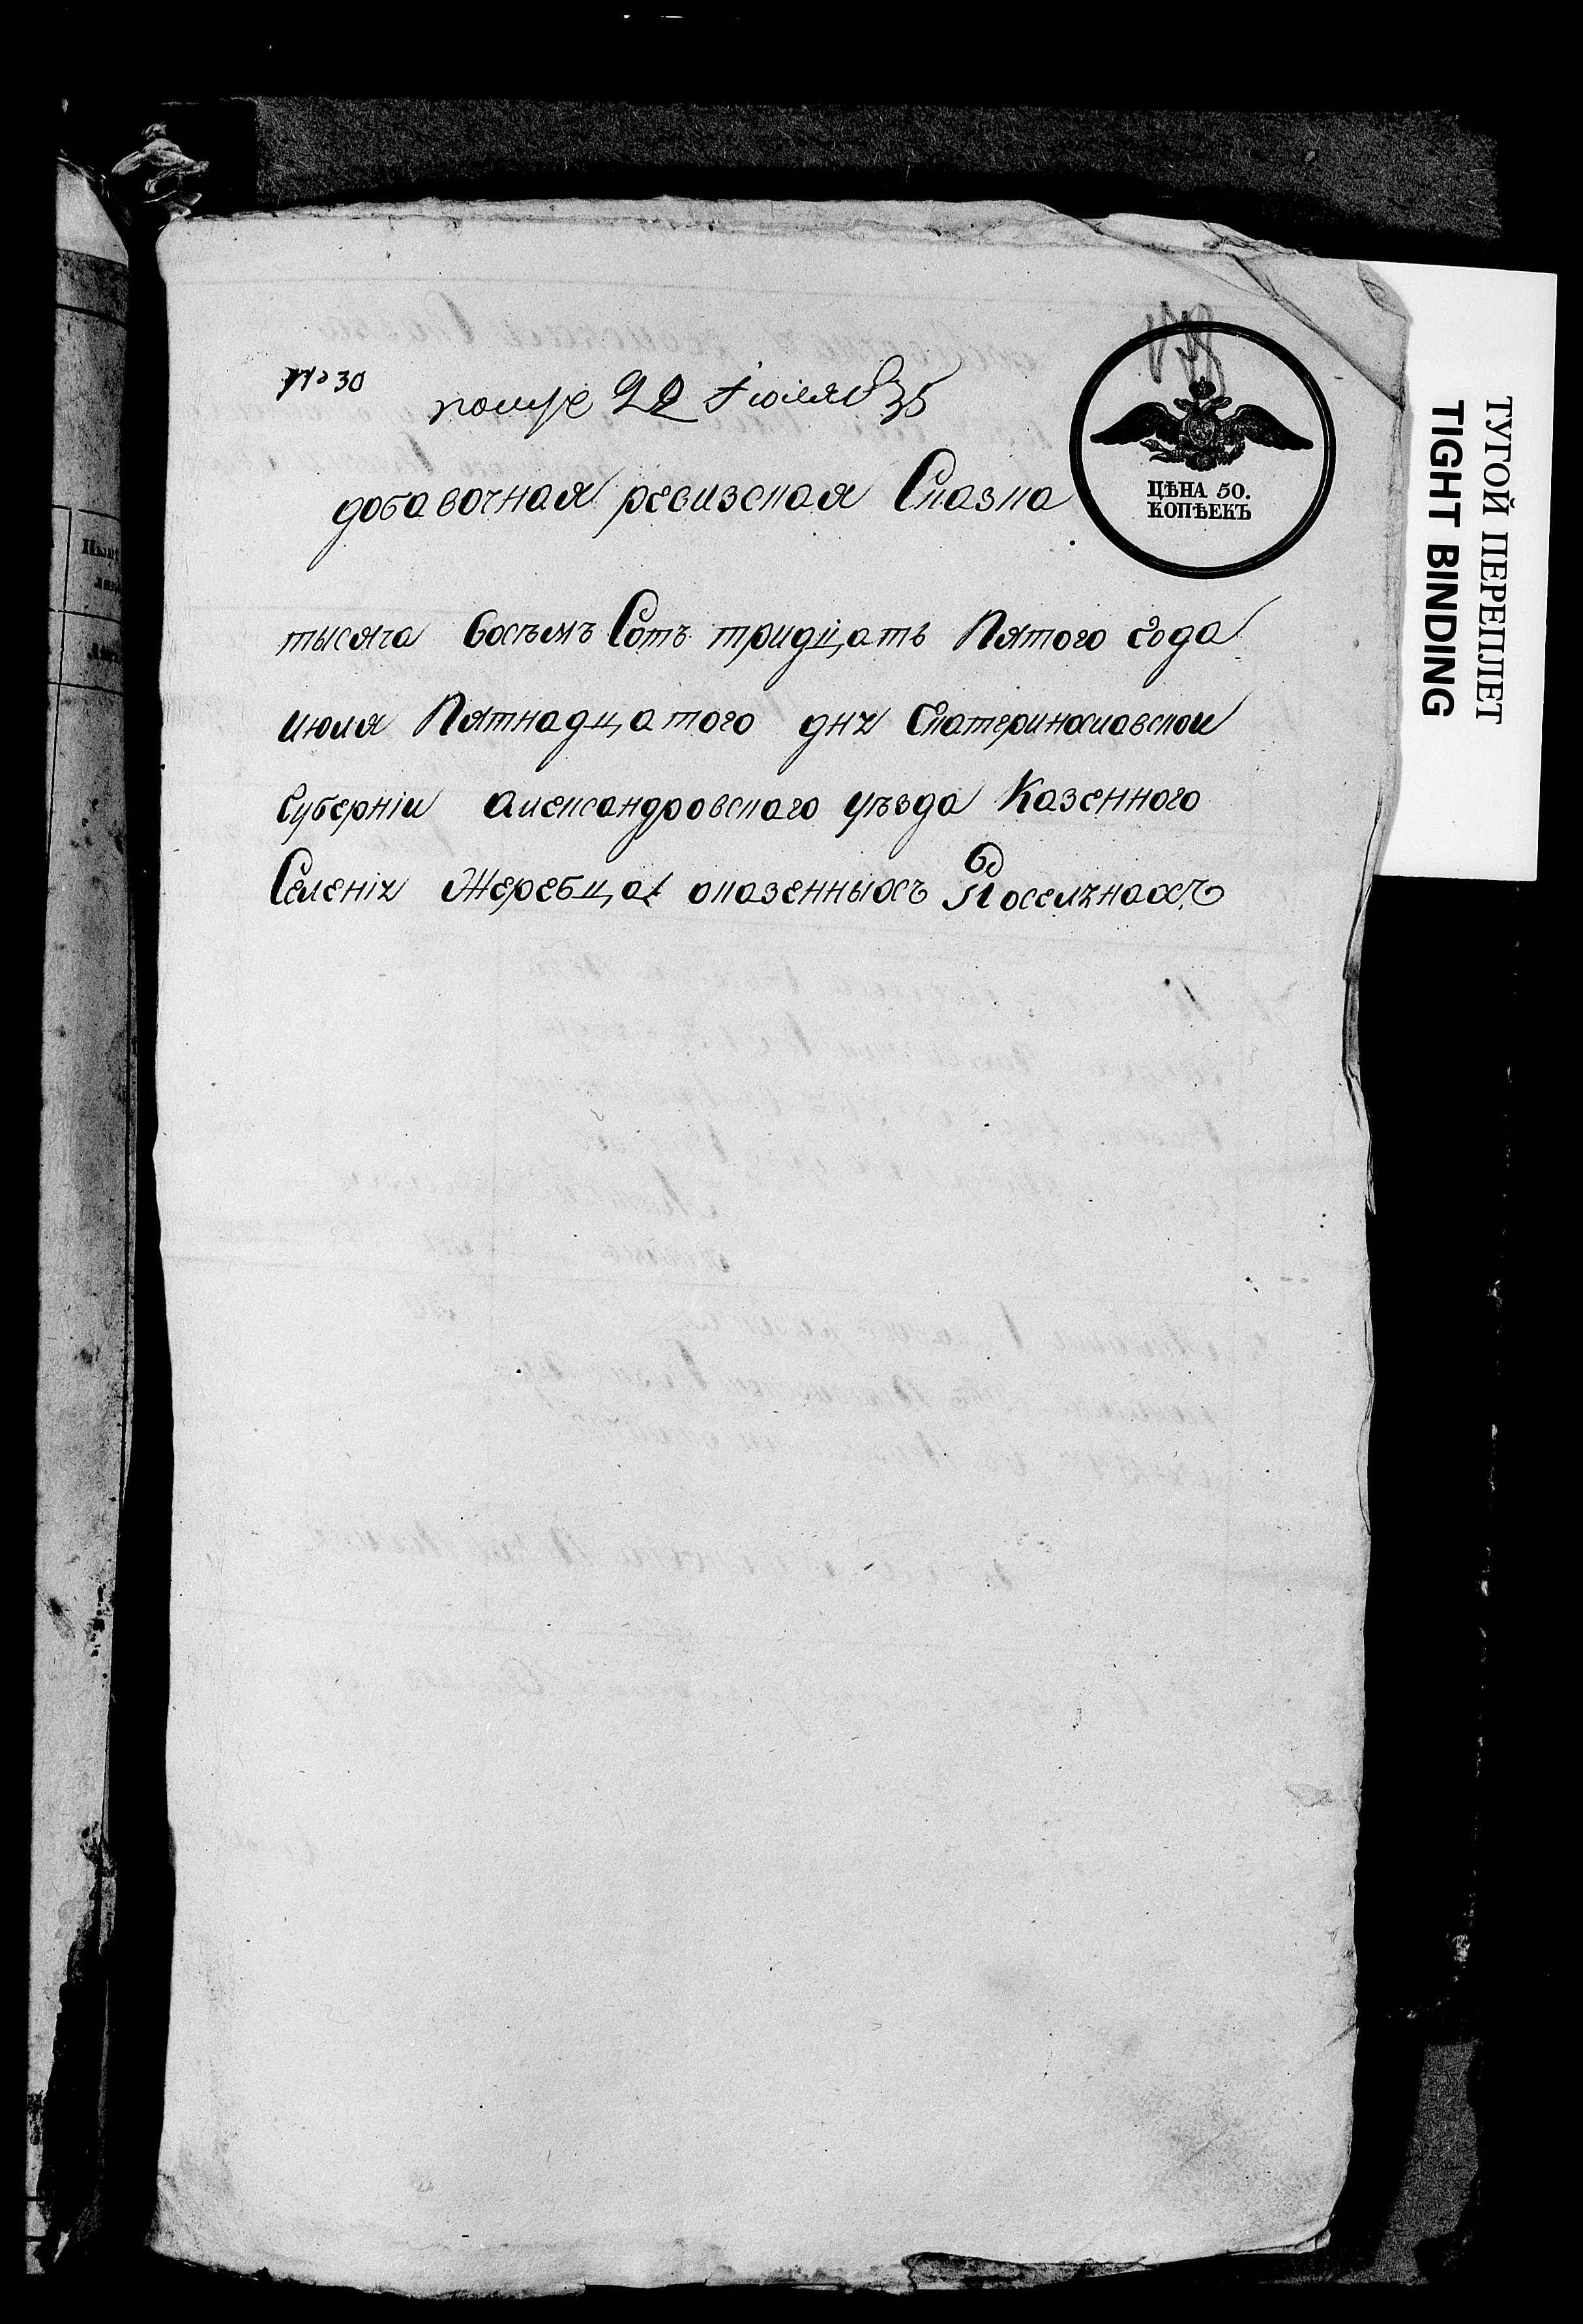 № 30
получе 22 Июля 835
ЦѢНА 50.
КОПѢЕКЪ
добавочная ревизская Сказка
тысяча восъмъ Сотъ тридцать Пятого года
июля Пятнадцатого дня Екатеринославской
Губерніи александровского уѣзда Казенного
Селенія Жеребца оказенныхъ Поселянахъ
ТУГОЙ ПЕРЕПЛЕТ
TIGHT BINDING